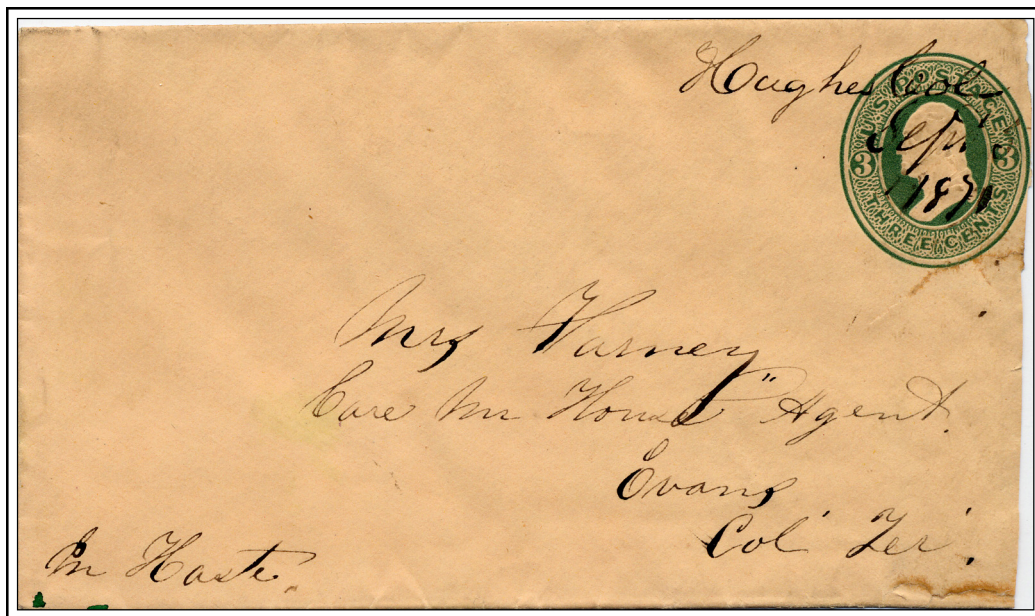 Hughes Colo
Sept
1871
U.S. POSTAGE
3 3
THREE CENTS
Mrs Varney
Care Mr House "Agent.
Evans
Col Ter.
In Haste.